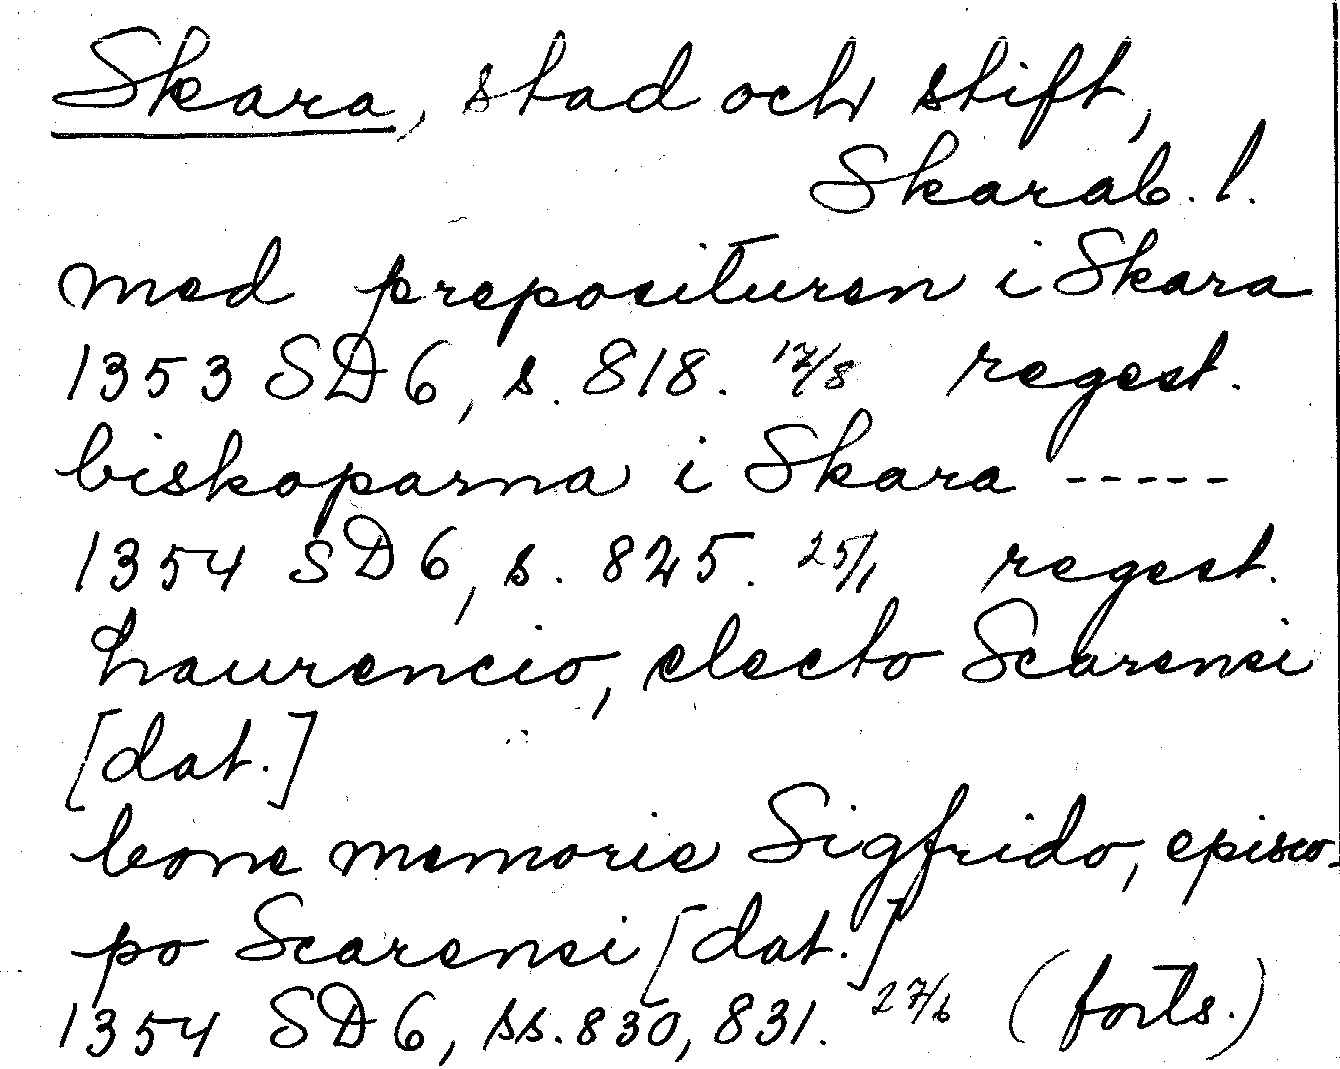 Skara, stad och stift,
Skarab. l.
med preposituren i Skara
1353 SD 6, s. 818. 17/8 regest.
biskoparna i Skara -----
1354 SD 6, s. 825. 25/1 regest.
Laurencio, electo Scarensi
[dat.]
bone memorie Sigfrido, episco-
po Scarensi [dat.]
1354 SD 6, ss. 830, 831. 27/6 (forts.)